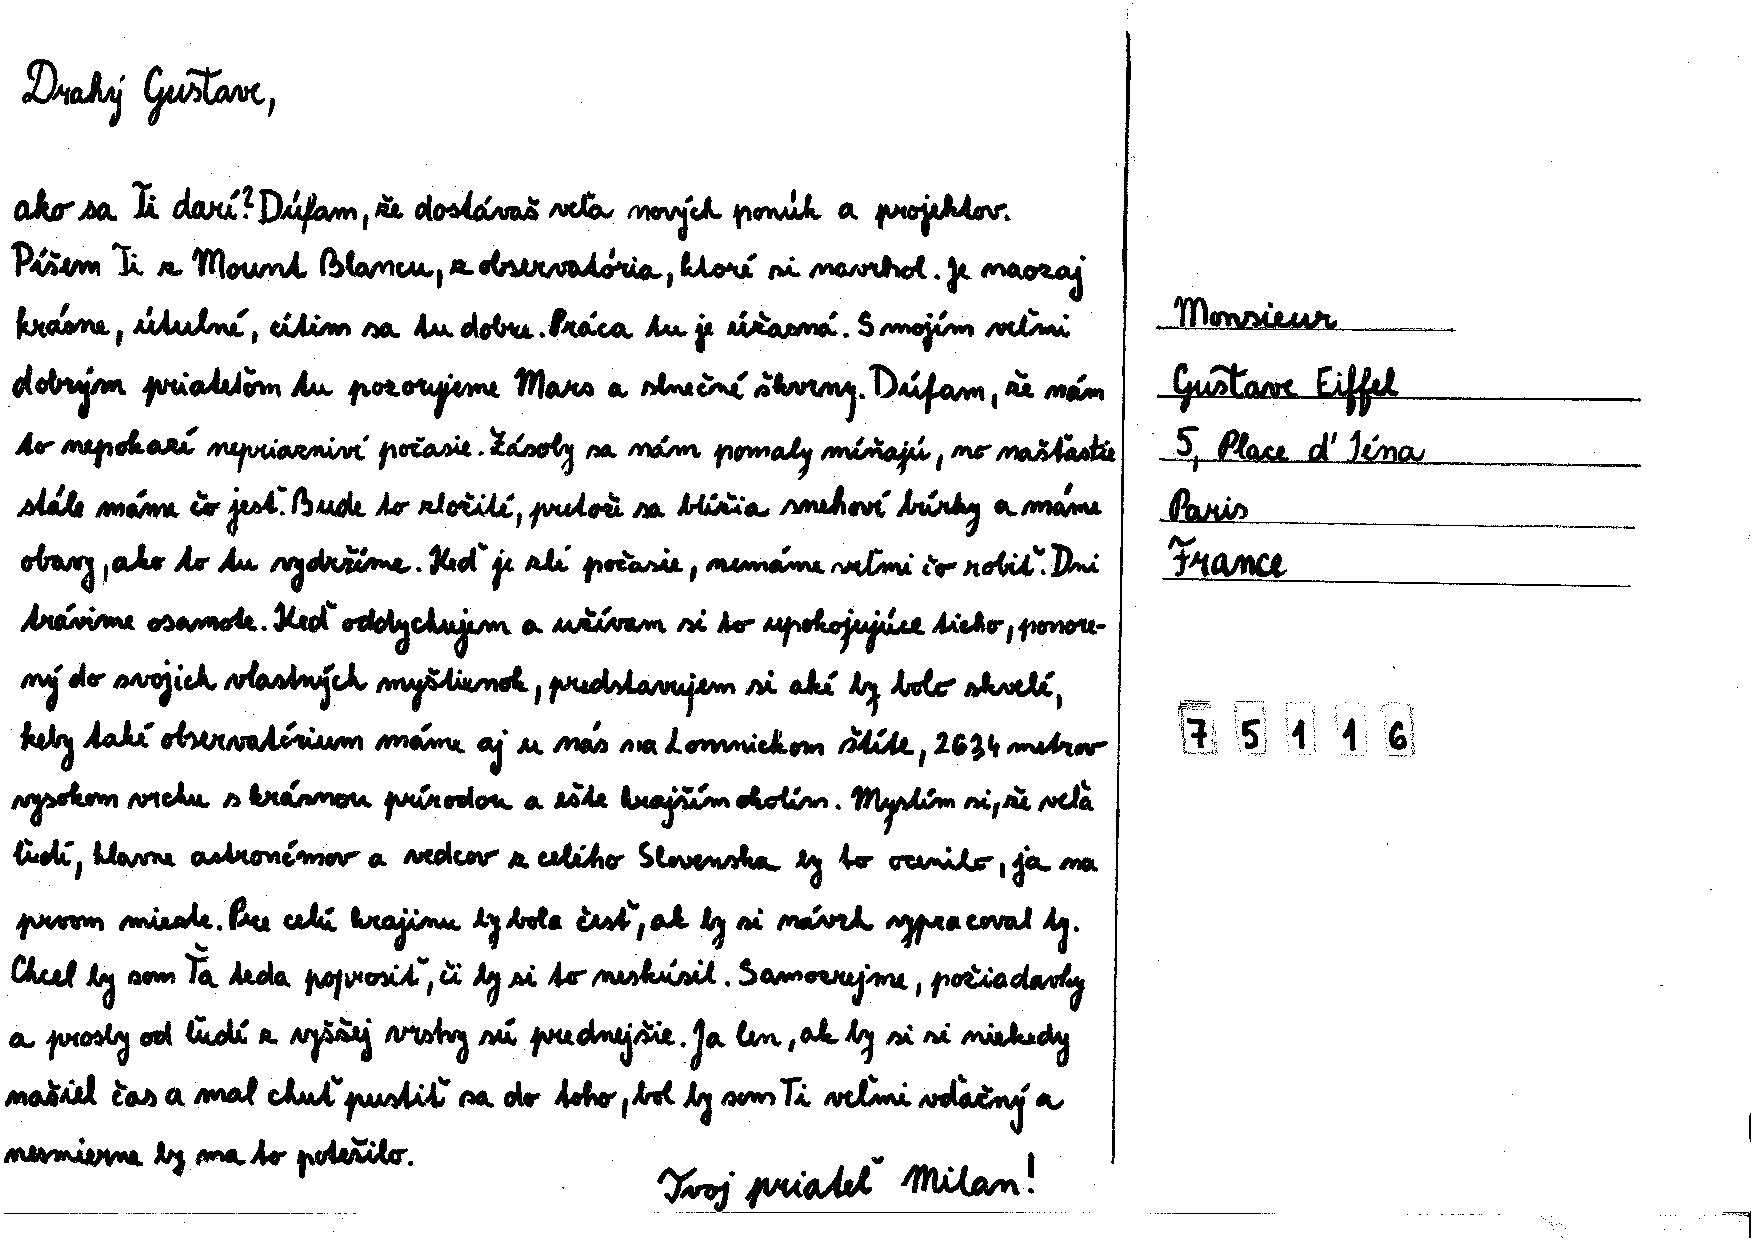 Drahý Gustave,
ako sa Ti darí? Dúfam, že dostávaš veľa nových ponúk a projektov.
Píšem Ti z Mount Blancu, z observatória, ktoré si navrhol. Je naozaj
krásne, útulné, cítim sa tu dobre. Práca tu je úžasná. S mojím veľmi
dobrým priateľom tu pozorujeme Mars a slnečné škvrny. Dúfam, že nám
to nepokazí nepriaznivé počasie. Zásoby sa nám pomaly míňajú, no našťastie
stále máme čo jesť. Bude to zložité, pretože sa blížia snehové búrky a máme
obavy, ako to tu vydržíme. Keď je zlé počasie, nemáme veľmi čo robiť. Dni
trávime osamote. Keď oddychujem a užívam si to upokojujúce ticho, ponore-
ný do svojich vlastných myšlienok, predstavujem si aké by bolo skvelé,
keby také observatórium máme aj u nás na Lomnickom štíte, 2634 metrov
vysokom vrchu s krásnou prírodou a ešte krajším okolím. Myslím si, že veľa
ľudí, hlavne astronómov a vedcov z celého Slovenska by to ocenilo, ja na
prvom mieste. Pre celú krajinu by bola česť, ak by si návrh vypracoval ty.
Chcel by som Ťa teda poprosiť, či by si to neskúsil. Samozrejme, požiadavky
a prosby od ľudí z vyššej vrstvy sú prednejšie. Ja len, ak by si si niekedy
našiel čas a mal chuť pustiť sa do toho, bol by som Ti veľmi vďačný a
nesmierne by ma to potešilo.
Tvoj priateľ Milan!
Monsieur
Gustave Eiffel
5, Place d'Iéna
Paris
France
7 5 1 1 6